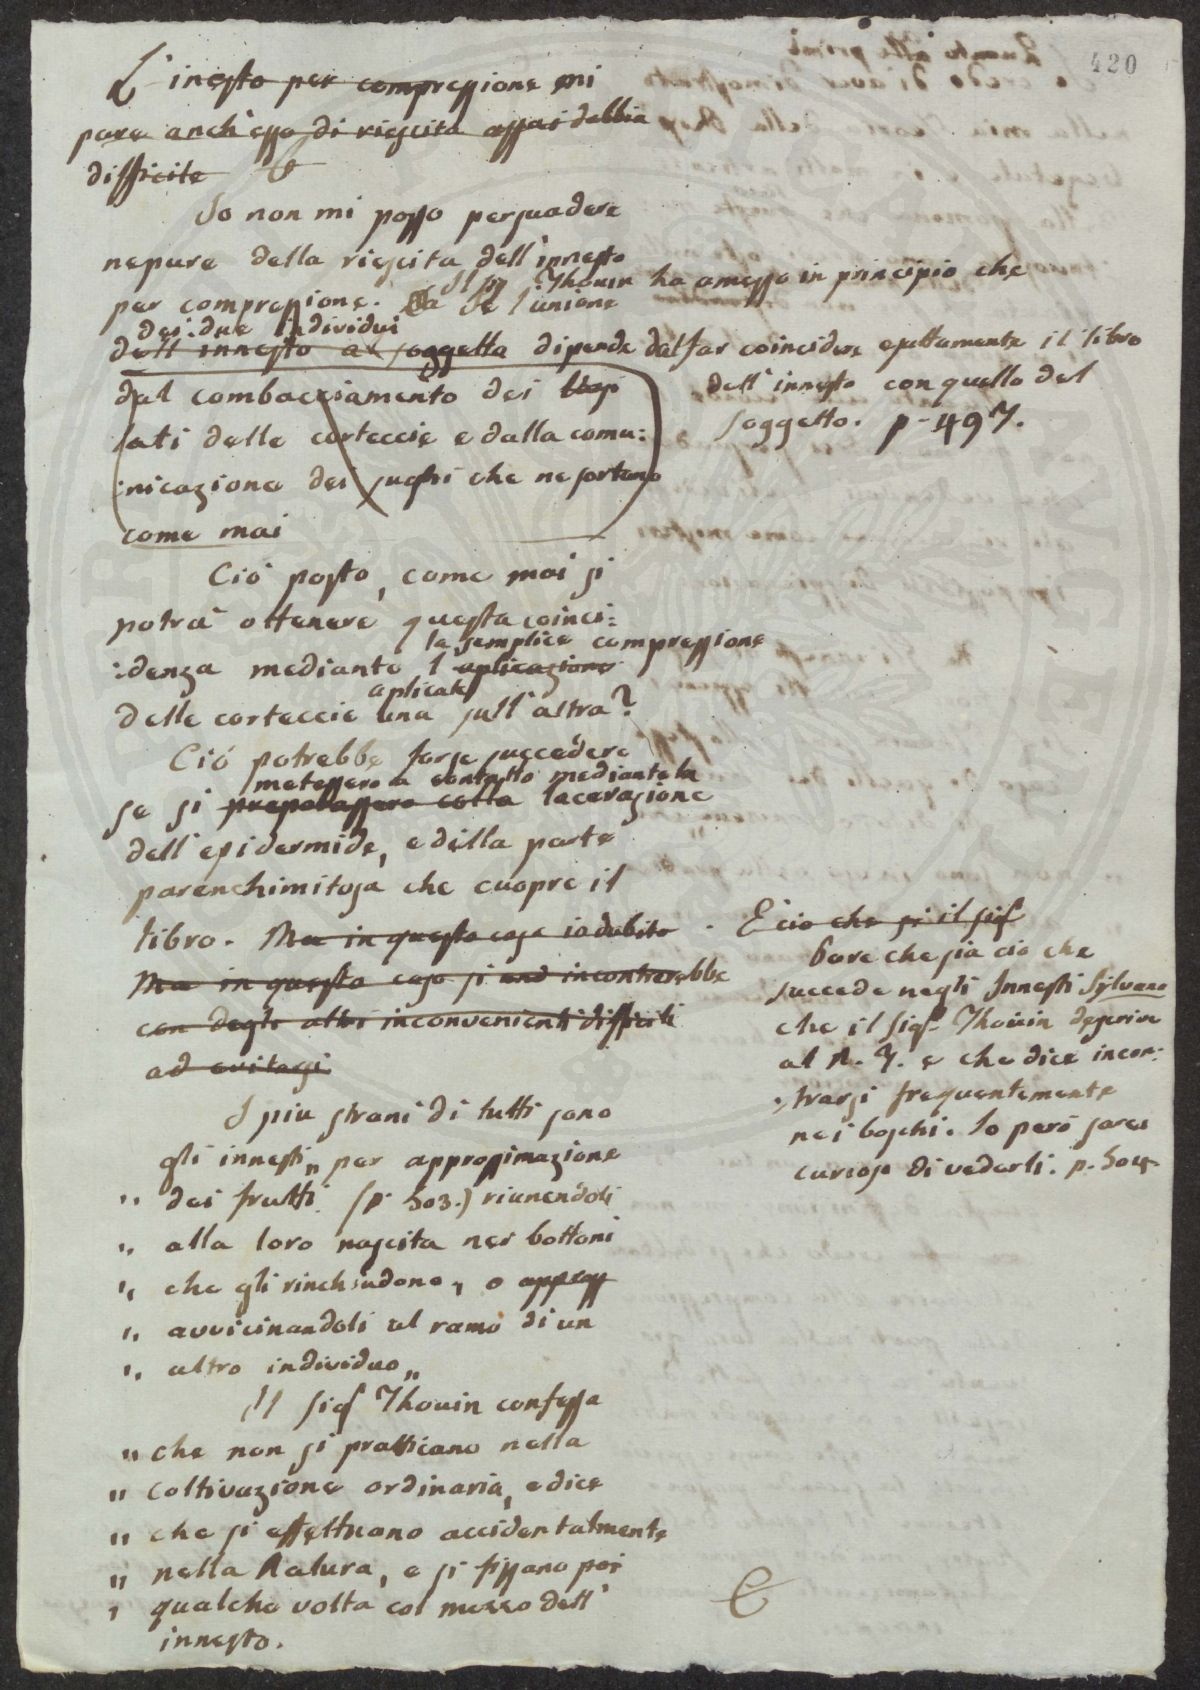 420
L'inesto per compressione mi
pare anch'esso di riescita assai dubbia
difficile
Io non mi posso persuadere
nepure della riescita dell'innesto
per compressione. Il Sigr Thouin ha amesso in principio che
Se l'unione
dei due individui
dell'innesto al soggetto dipende dal far coincidere esattamente il libro
dell'innesto con quello del
soggetto. p. 497.
dal combacciamento dei
lati delle corteccie e dalla comu:
:nicazione dei sughi che ne sortono
come mai
Ciò posto, come mai si
potrà ottenere questa coinci:
la semplice compressione
:denza mediante l'aplicazione
aplicate
delle corteccie una sull'altra?
Ciò potrebbe forse succedere
metessero a contatto mediante la
se si preparassero colla lacerazione
dell'epidermide, e della parte
parenchimitosa che cuopre il
libro. Ma in questo caso io dubito
Ma in questo caso si incontrerebbe
con degli altri inconvenienti difficili
ad evitarsi
E ciò che si il Sigr
Pare che sia ciò che
succede negli Innesti Sylvain
che il Sigr Thouin descrive
al N. 7. e che dice incon:
:trarsi frequentemente
nei boschi. Io però sarei
curioso di vederli. p. 504
I piu strani di tutti sono
gli innesti „ per approssimazione
„ dei frutti (p. 503.) riunendoli
„ alla loro nascita nei bottoni
„ che gli rinchiudono, o appross
„ avvicinandoli al ramo di un
„ altro individuo „
Il Sigr Thouin confessa
„ che non si pratticano nella
„ coltivazione ordinaria, e dice
„ che si effettuano accidentalmente
„ nella Natura, e si fissano poi
„ qualche volta col mezzo dell'
innesto.